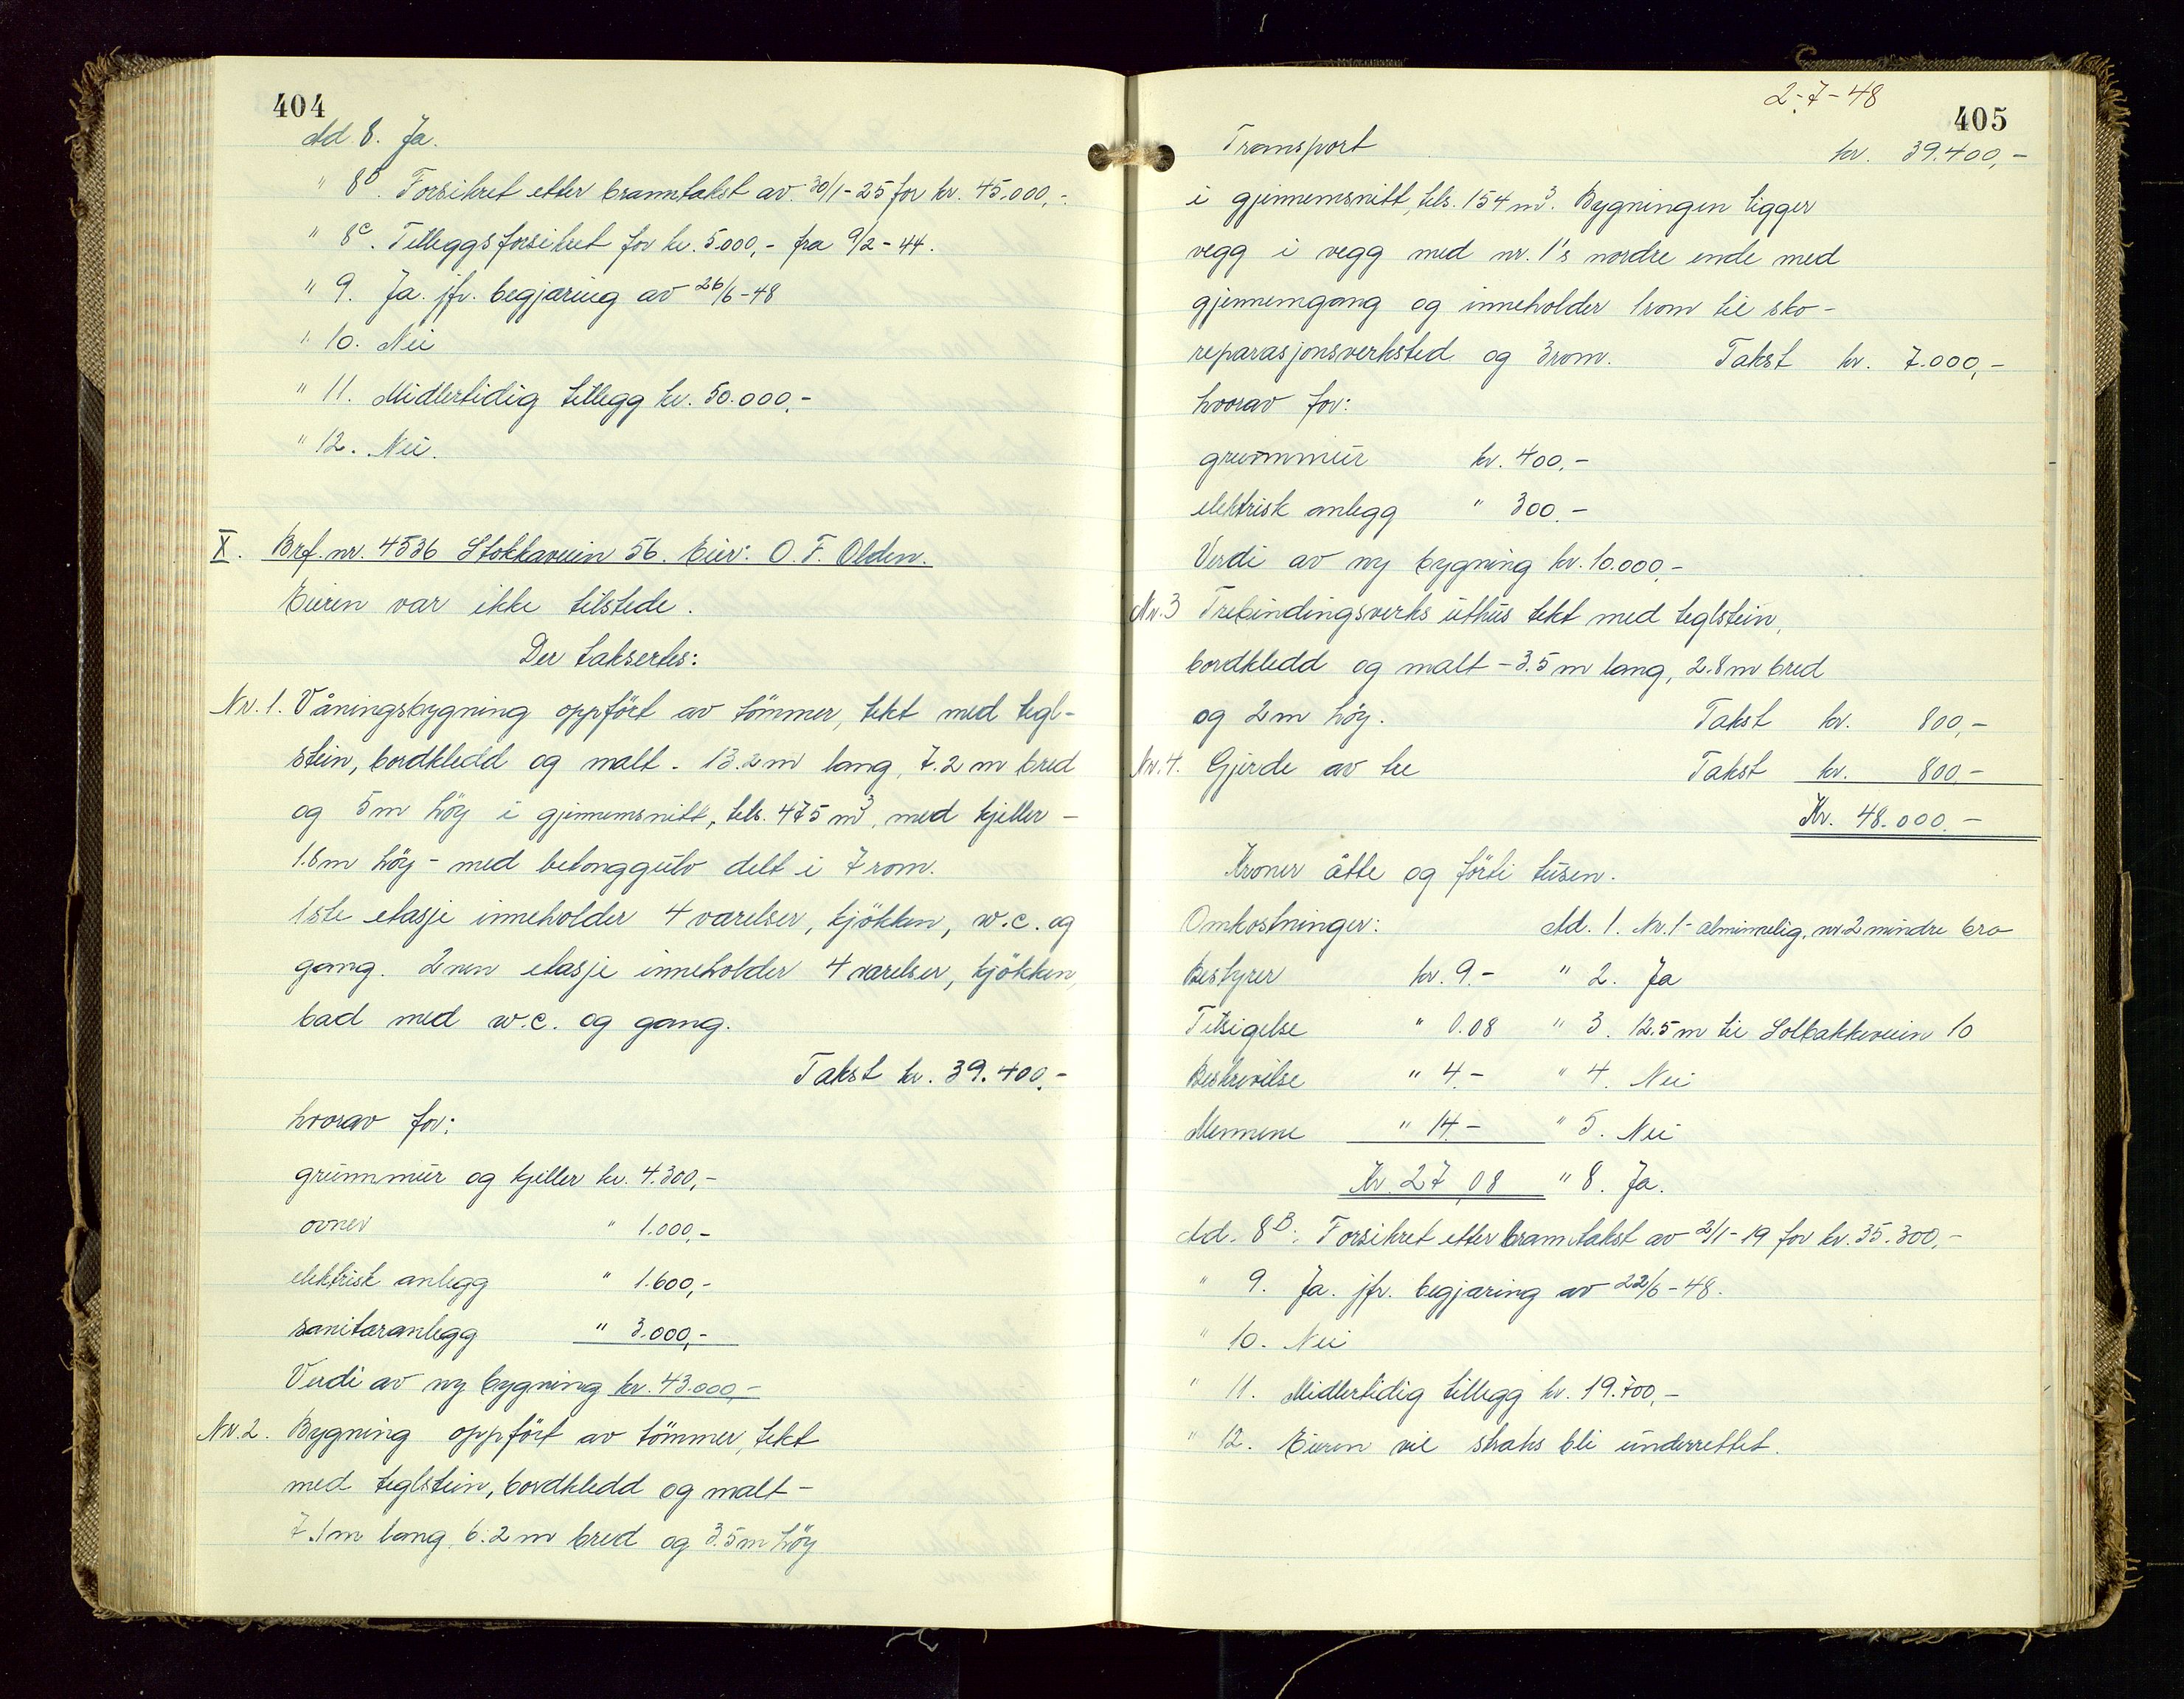 404
Ad 8. Ja.
" 8B. Forsikret etter branntakst av 30/1-25 for kr. 45.000,-
" 8C. Tilleggsforsikret for kr. 5.000,- fra 9/2-44.
" 9. Ja. jfr. begjæring av 26/6-48
" 10. Nei
" 11. Midlertidig tillegg kr. 50.000,-
" 12. Nei.
X. Brf. nr. 4536 Stokkaveien 56. Eier: O. F. Olden.
Eieren var ikke tilstede.
Der taksertes:
Nr. 1. Våningsbygning oppfört av tömmer, tekt med tegl-
stein, bordkledd og malt - 13.2m lang, 7.2m bred
og 5m höy i gjennemsnitt, tils. 475 m³, med kjeller -
1.8m höy - med betonggulv delt i 7 rom.
1ste etasje inneholder 4 værelser, kjökken, w.c. og
gang. 2nen etasje inneholder 4 værelser, kjökken,
bad med w.c. og gang.
Takst kr. 39.400,-
hvorav for:
grunnmur og kjeller kr. 4.300,-
ovner " 1.000,-
elektrisk anlegg " 1.600,-
sanitæranlegg " 3.000,-
Verdi av ny bygning kr. 43.000,-
Nr. 2. Bygning oppfört av tömmer, tekt
med teglstein, bordkledd og malt -
7.1m lang, 6.2m bred og 3.5m höy
2-7-48
405
Transport kr. 39.400,-
i gjennemsnitt, tils. 154 m³. Bygningen ligger
vegg i vegg med nr. 1's nordre ende med
gjennemgang og inneholder 1 rom til sko-
reparasjonsverksted og 3 rom. Takst kr. 7.000,-
hvorav for:
grunnmur kr. 400,-
elektrisk anlegg " 300,-
Verdi av ny bygning kr. 10.000,-
Nr. 3 Trebindingsverks uthus tekt med teglstein,
bordkledd og malt - 3.5m lang, 2.8m bred
og 2m höy. Takst kr. 800,-
Nr. 4. Gjerde av tre Takst kr. 800,-
Kr. 48.000,-
Kroner åtte og förti tusen.
Omkostninger: Ad. 1. Nr. 1 - alminnelig, nr. 2 mindre bra
Bestyrer kr. 9.- " 2. Ja
Tilsigelse " 0.08 " 3. 12.5m til Solbakkeveien 10
Beskrivelse " 4.- " 4. Nei
Mennene " 14.- " 5. Nei
Kr. 27,08 " 8. Ja.
Ad. 8B. Forsikret etter branntakst av 2/1-19 for kr. 35.300,-
" 9. Ja. jfr. begjæring av 22/6-48.
" 10. Nei
" 11. Midlertidig tillegg kr. 19.700,-
" 12. Eieren vil straks bli underrettet.